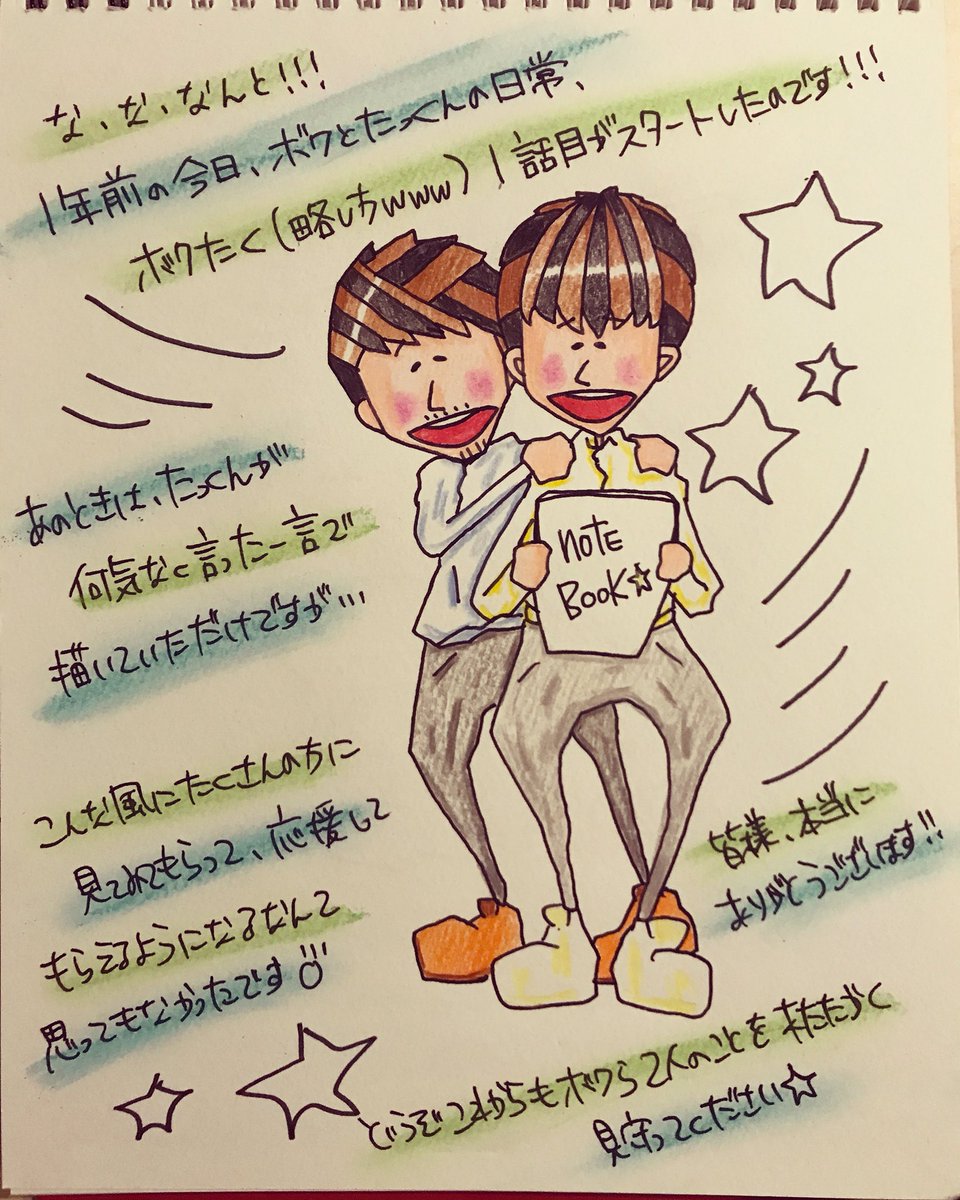 な、な、なんと!!!
1年前の今日、ボクとたっくんの日常、
ボクたく(略しちwww)1話目がスタートしたのです!!!
あのときは、たっくんが
何気なく言った一言で
描いていただけですが…
note
Book☆
こんな風にたくさんの方に
見てみてもらって、応援して
もらてるようになるなんて
思ってもなかったです
皆様、本当に
ありがとうございます!!
どうぞこれからもボクら2人のことを
見守ってください☆